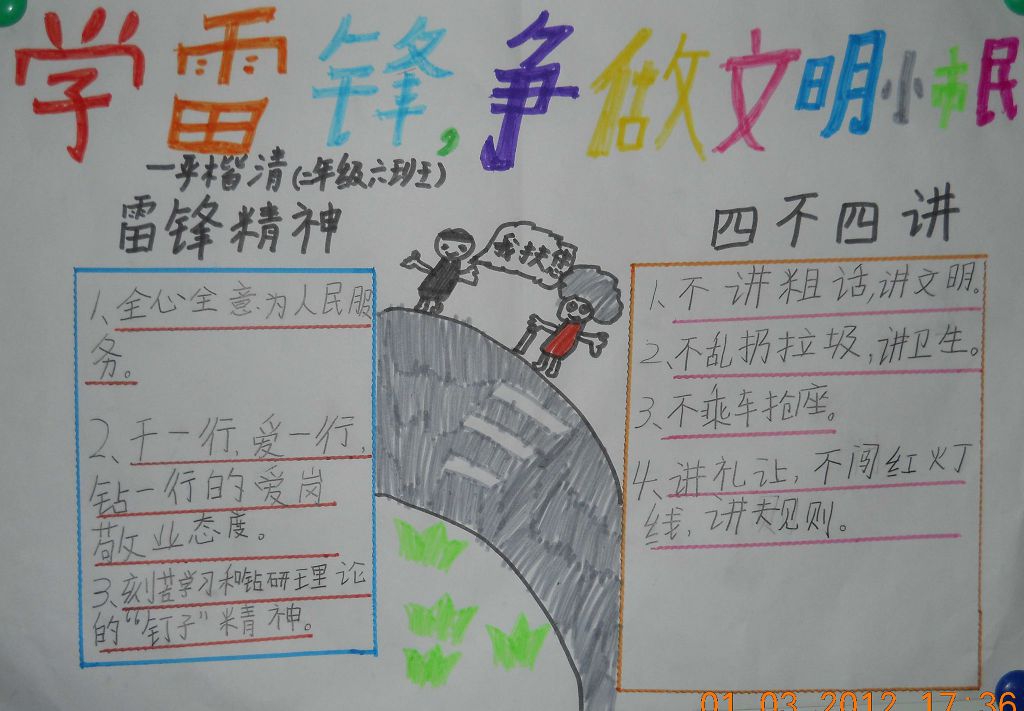 学雷锋,争做文明小市民
一平楷清(二年级六班王)
雷锋精神
1、全心全意为人民服
务。
2、干一行,爱一行,
钻一行的爱岗
敬业态度。
3、刻苦学习和钻研理论
的“钉子”精神。
我扶您
四不四讲
1、不讲粗话,讲文明。
2、不乱扔垃圾,讲卫生。
3、不乘车抢座。
4、讲礼让,不闯红灯
线,讲规则。
01 03 2012 17:36